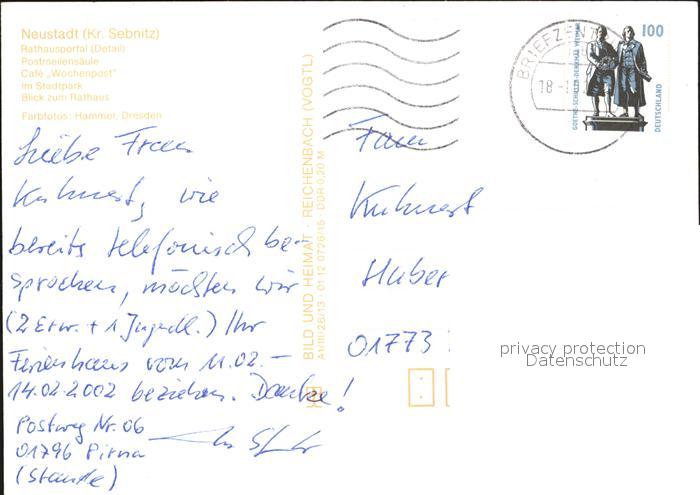 Neustadt (Kr. Sebnitz)
Rathausportal (Detail)
Postmeilensäule
Café „Wochenpost"
Im Stadtpark
Blick zum Rathaus
Farbfotos: Hammer, Dresden
Liebe Frau
Kuhnert, wie
bereits telefonisch be-
sprochen, möchten wir
(2 Erw. + 1 Jugendl.) Ihr
Ferienhaus vom 11.02. –
14.02.2002 beziehen. Danke!
Postweg Nr. 06
01796 Pirna
(Staude)
BILD UND HEIMAT · REICHENBACH (VOGTL)
A1/III/26/13 · 01 12 0726/15 · DDR 0,20 M
BRIEFZENT
18 -
GOETHE-SCHILLER-DENKMAL WEIMAR
100
DEUTSCHLAND
Frau
Kuhnert
Huber
01773
privacy protection
Datenschutz